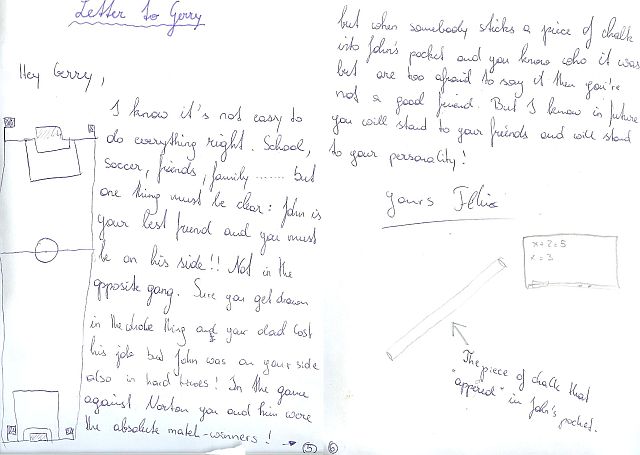 Letter to Gerry
Hey Gerry,
I know it's not easy to
do everything right. School,
soccer, friends, family ....... but
one thing must be clear: John is
your best friend and you must
be on his side!! Not in the
opposite gang. Sure you get drawn
in the whole thing and your dad lost
his job but John was on your side
also in hard times! In the game
against Norton you and him were
the absolute match-winners!
5
but when somebody sticks a piece of chalk
into John's pocket and you know who it was
but are too afraid to say it then you're
not a good friend. But I know in future
you will stand to your friends and will stand
to your personality!
Yours Felix
x+2=5
x=3
The piece of chalk that
"appered" in John's pocket.
6